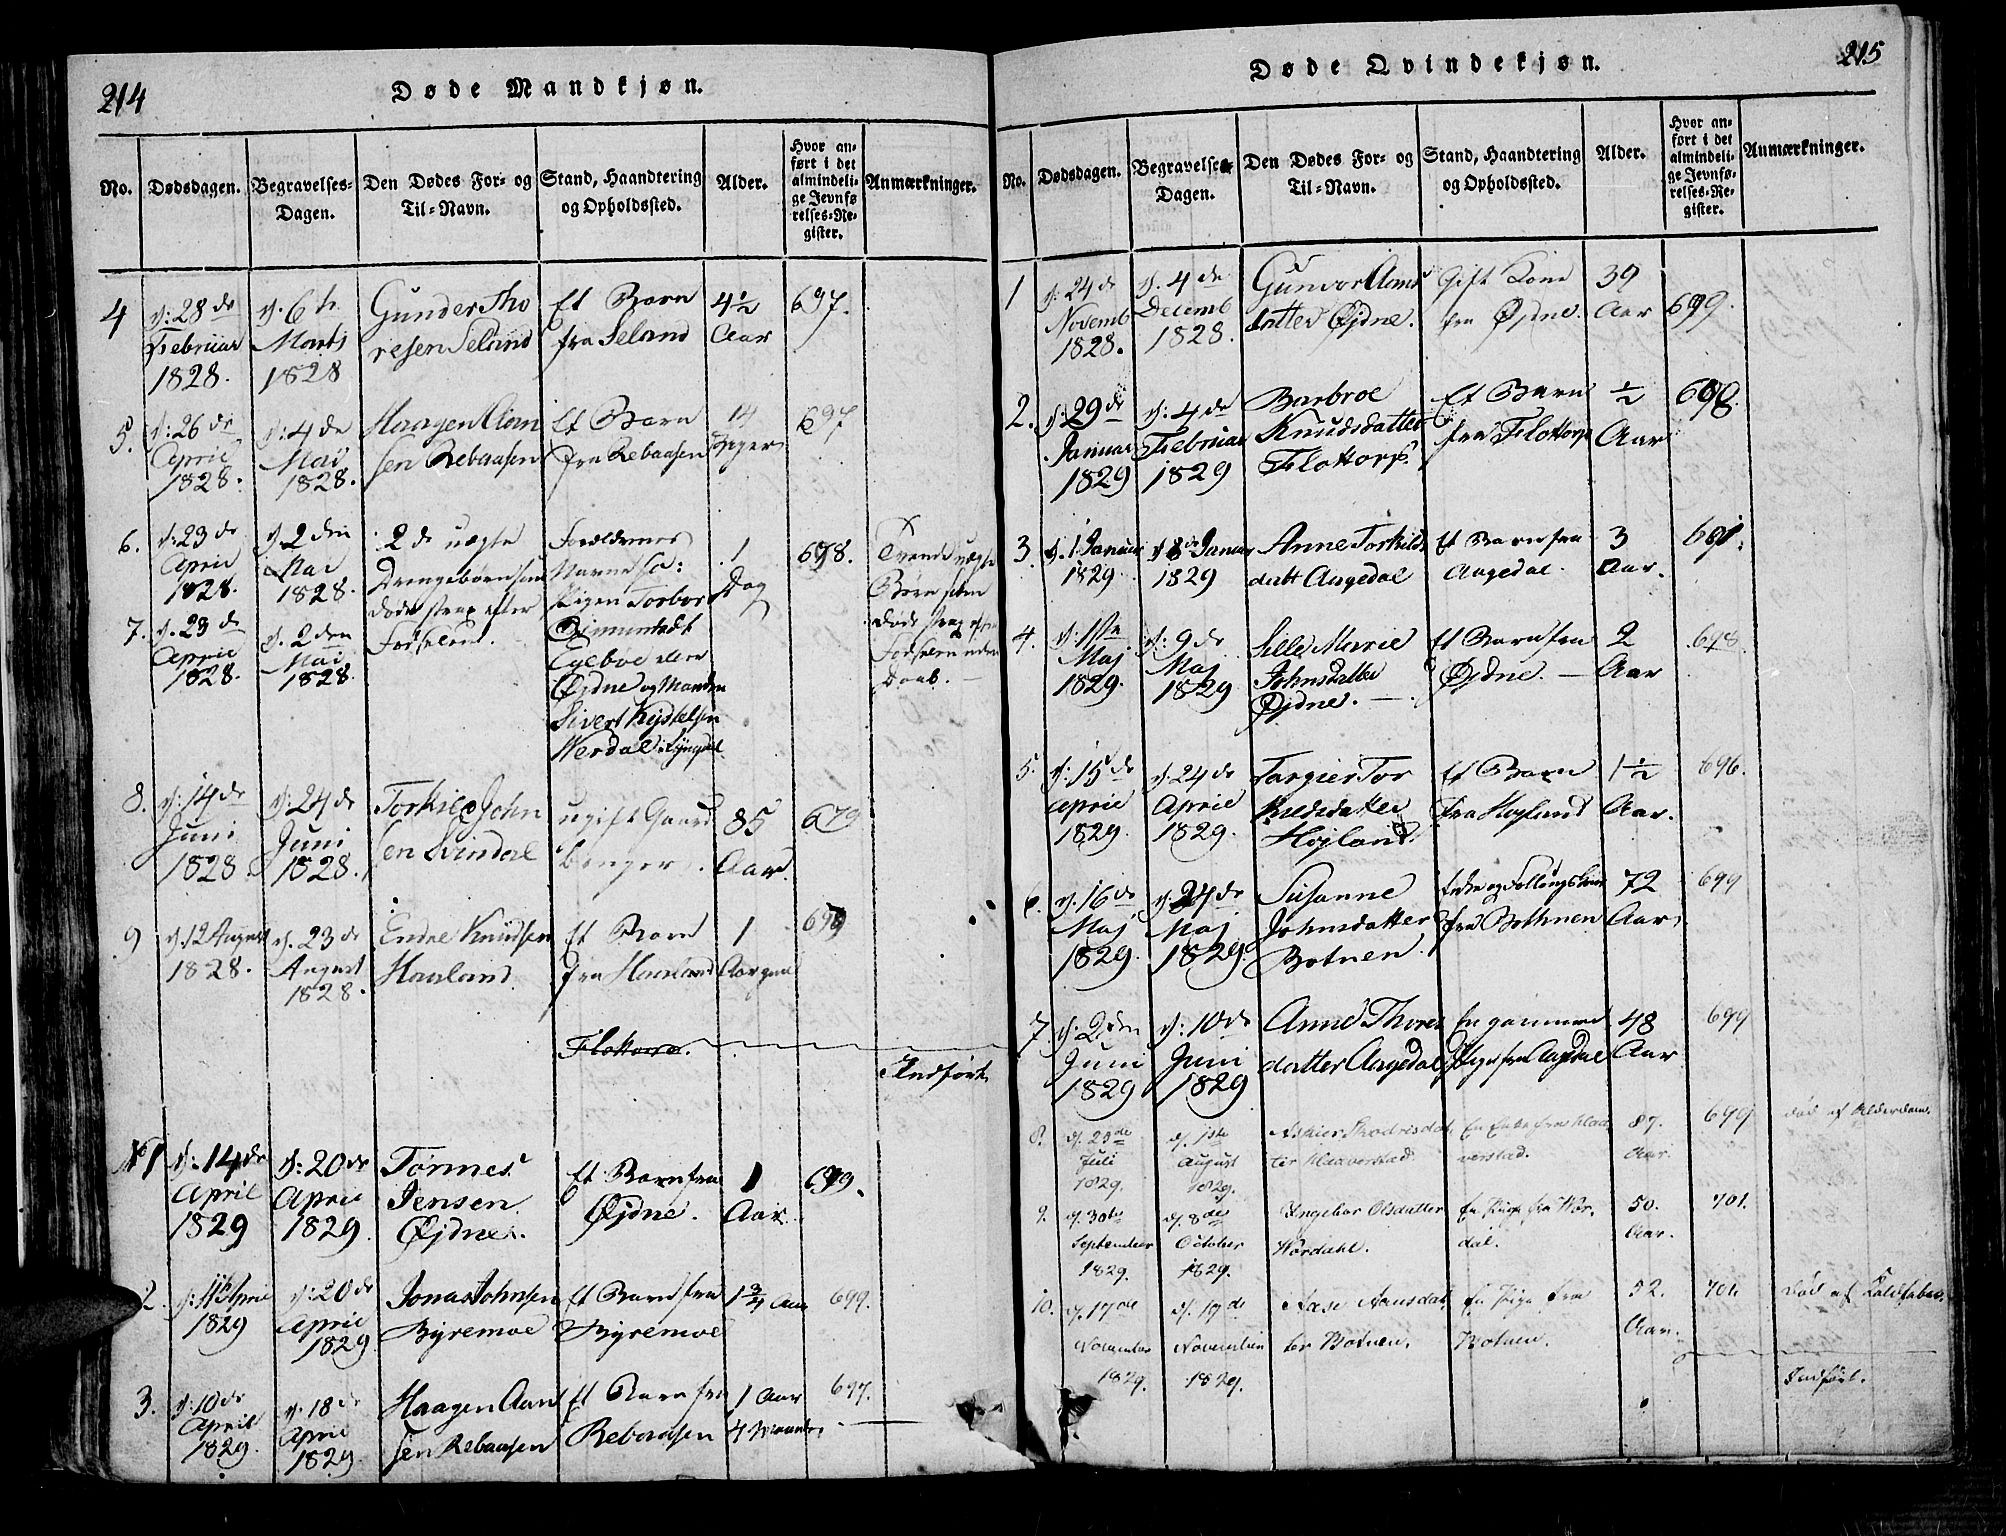 214
Døde Mandkjøn.
No.
Dødsdagen.
Begravelses-
Dagen.
Den Dødes For- og
Til-Navn.
Stand, Haandtering
og Opholdssted.
Alder.
Hvor an-
ført i det
almindeli-
ge Jevnfø
relses-Re-
gister.
Anmærkninger.
4
d: 28 de
Februar
1828.
d. 6 te
Marts
1828
Gunder Tho
resen Seland
Et Barn
fra Seland
4½
Aar
697.
5.
d: 26 de
April
1828.
d: 4 de
Mai
1828.
Haagen Aan
sen Rebaasen
Et Barn
fra Rebaasen
14
Dager
697
6.
d: 23 de
April
1828.
d. 2 den
Mai
1828.
2 de uægte
Drengebørn som
døde strax efter
Fødselen.
Forældrenes
Navne ere:
Pigen Torbor
Egeboe eller
Øjdne og Manden
Sivert
1
Dag
698.
uægte
Børn som
døde strax efter
Fødselen uden
Daab. —
7.
d. 23 de
April
1828.
d. 2 den
Mai
1828.
8.
d: 14 de
Juni
1828
d: 24 de
Juni
1828.
Torkild John
sen Svindal
ugift Gaard
bruger.
85
Aar.
679
9
d. 12 August
1828.
d. 23 de
August
1828.
Endre Knudsen
Haaland.
Et Barn
fra Haaland
1
Aar gml
699
Flottorp.
Indført
N 1
d: 14 de
April
1829
d: 20 de
April
1829.
Tønnes
Jensen
Øjdne.
Et Barn fra
Øjdne.
1
Aar.
699.
2.
April
1829
d: 20 de
April
1829.
Jonas Johnsen
Byremoe
Et Barn fra
Byremoe
1¾ Aar
699.
3.
d: 10 de
April
1829.
d. 18 de
April
1829.
Haagen Aan
sen Rebaasen
Et Barn fra
Rebaasen
1 Aar
4 Maaneder
697.
215
Døde Qvindekjøn.
No.
Dødsdagen.
Begravelses-
Dagen.
Den Dødes For- og
Til-Navn.
Stand, Haandtering
og Opholdssted.
Alder.
Hvor an-
ført i det
almindeli-
ge Jevnfø-
relses-Re-
gister.
Anmærkninger.
1
d: 24 de
Novemb
1828.
d. 4 de
Decemb
1828.
Gunvor Aans
datter Øjdne.
Gift Kone
fra Øjdne.
39
Aar
699.
2.
d: 29 de
Januar
1829
d: 4 de
Februar
1829
Barbroe
Knudsdatter
Flottorp.
Et Barn
fra Flottorp
½
Aar
698.
3.
d. 1 Januar
1829.
d 8 de Januar
1829
Anne Torkilds
datt Aagedal
Et Barn fra
Aagedal.
3
Aar.
691.
4.
d: 1ste
Maj
1829.
d: 9 de
Maj
1829
Sille Marie
Johnsdatter
Øjdne. —
Et Barn fra
Øjdne. —
2
Aar
698.
5.
d: 15 de
April
1829.
d. 24 de
April
1829.
Targier Tor
kildsdatter
Højland.
Et Barn
fra Højland
1½
Aar.
696.
6.
d. 16 de
Maj
1829.
d. 24 de
Maj
1829.
Susanne
Johnsdatter
Botnen.
fra Bothnen
72
Aar
699
7.
d: 2 den
Juni
1829
d: 10 de
Juni
1829
Anne Thores
datter Aagedal
En gammel
Pige fra Aagedal
48
Aar
699
8.
d. 23 de
Juli
1829.
d. 1ste
August
1829.
ter Klaaverstad.
En Enke fra Klaa
verstad.
87.
Aar.
699.
død af Alderdom.
9.
d. 30te
September
1829.
d. 8de
October
1829.
Ingebor Olsdatter
Wordahl.
En Pige fra Wor-
dal.
50.
Aar.
701.
10.
d. 17de
November
1829.
d. 19 de
November
1829.
Aase Aansdat-
ter Botnen.
En Pige fra
Botnen.
52.
Aar.
701.
død af Koldfeber.
Indført.